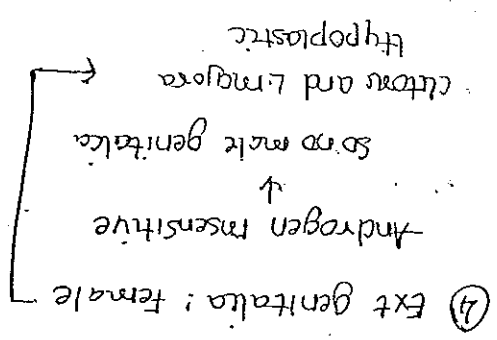 ④ Ext genitalia : Female
Androgen insensitive
↓
so no male genitalia
clitoris and L.majora
Hypoplastic